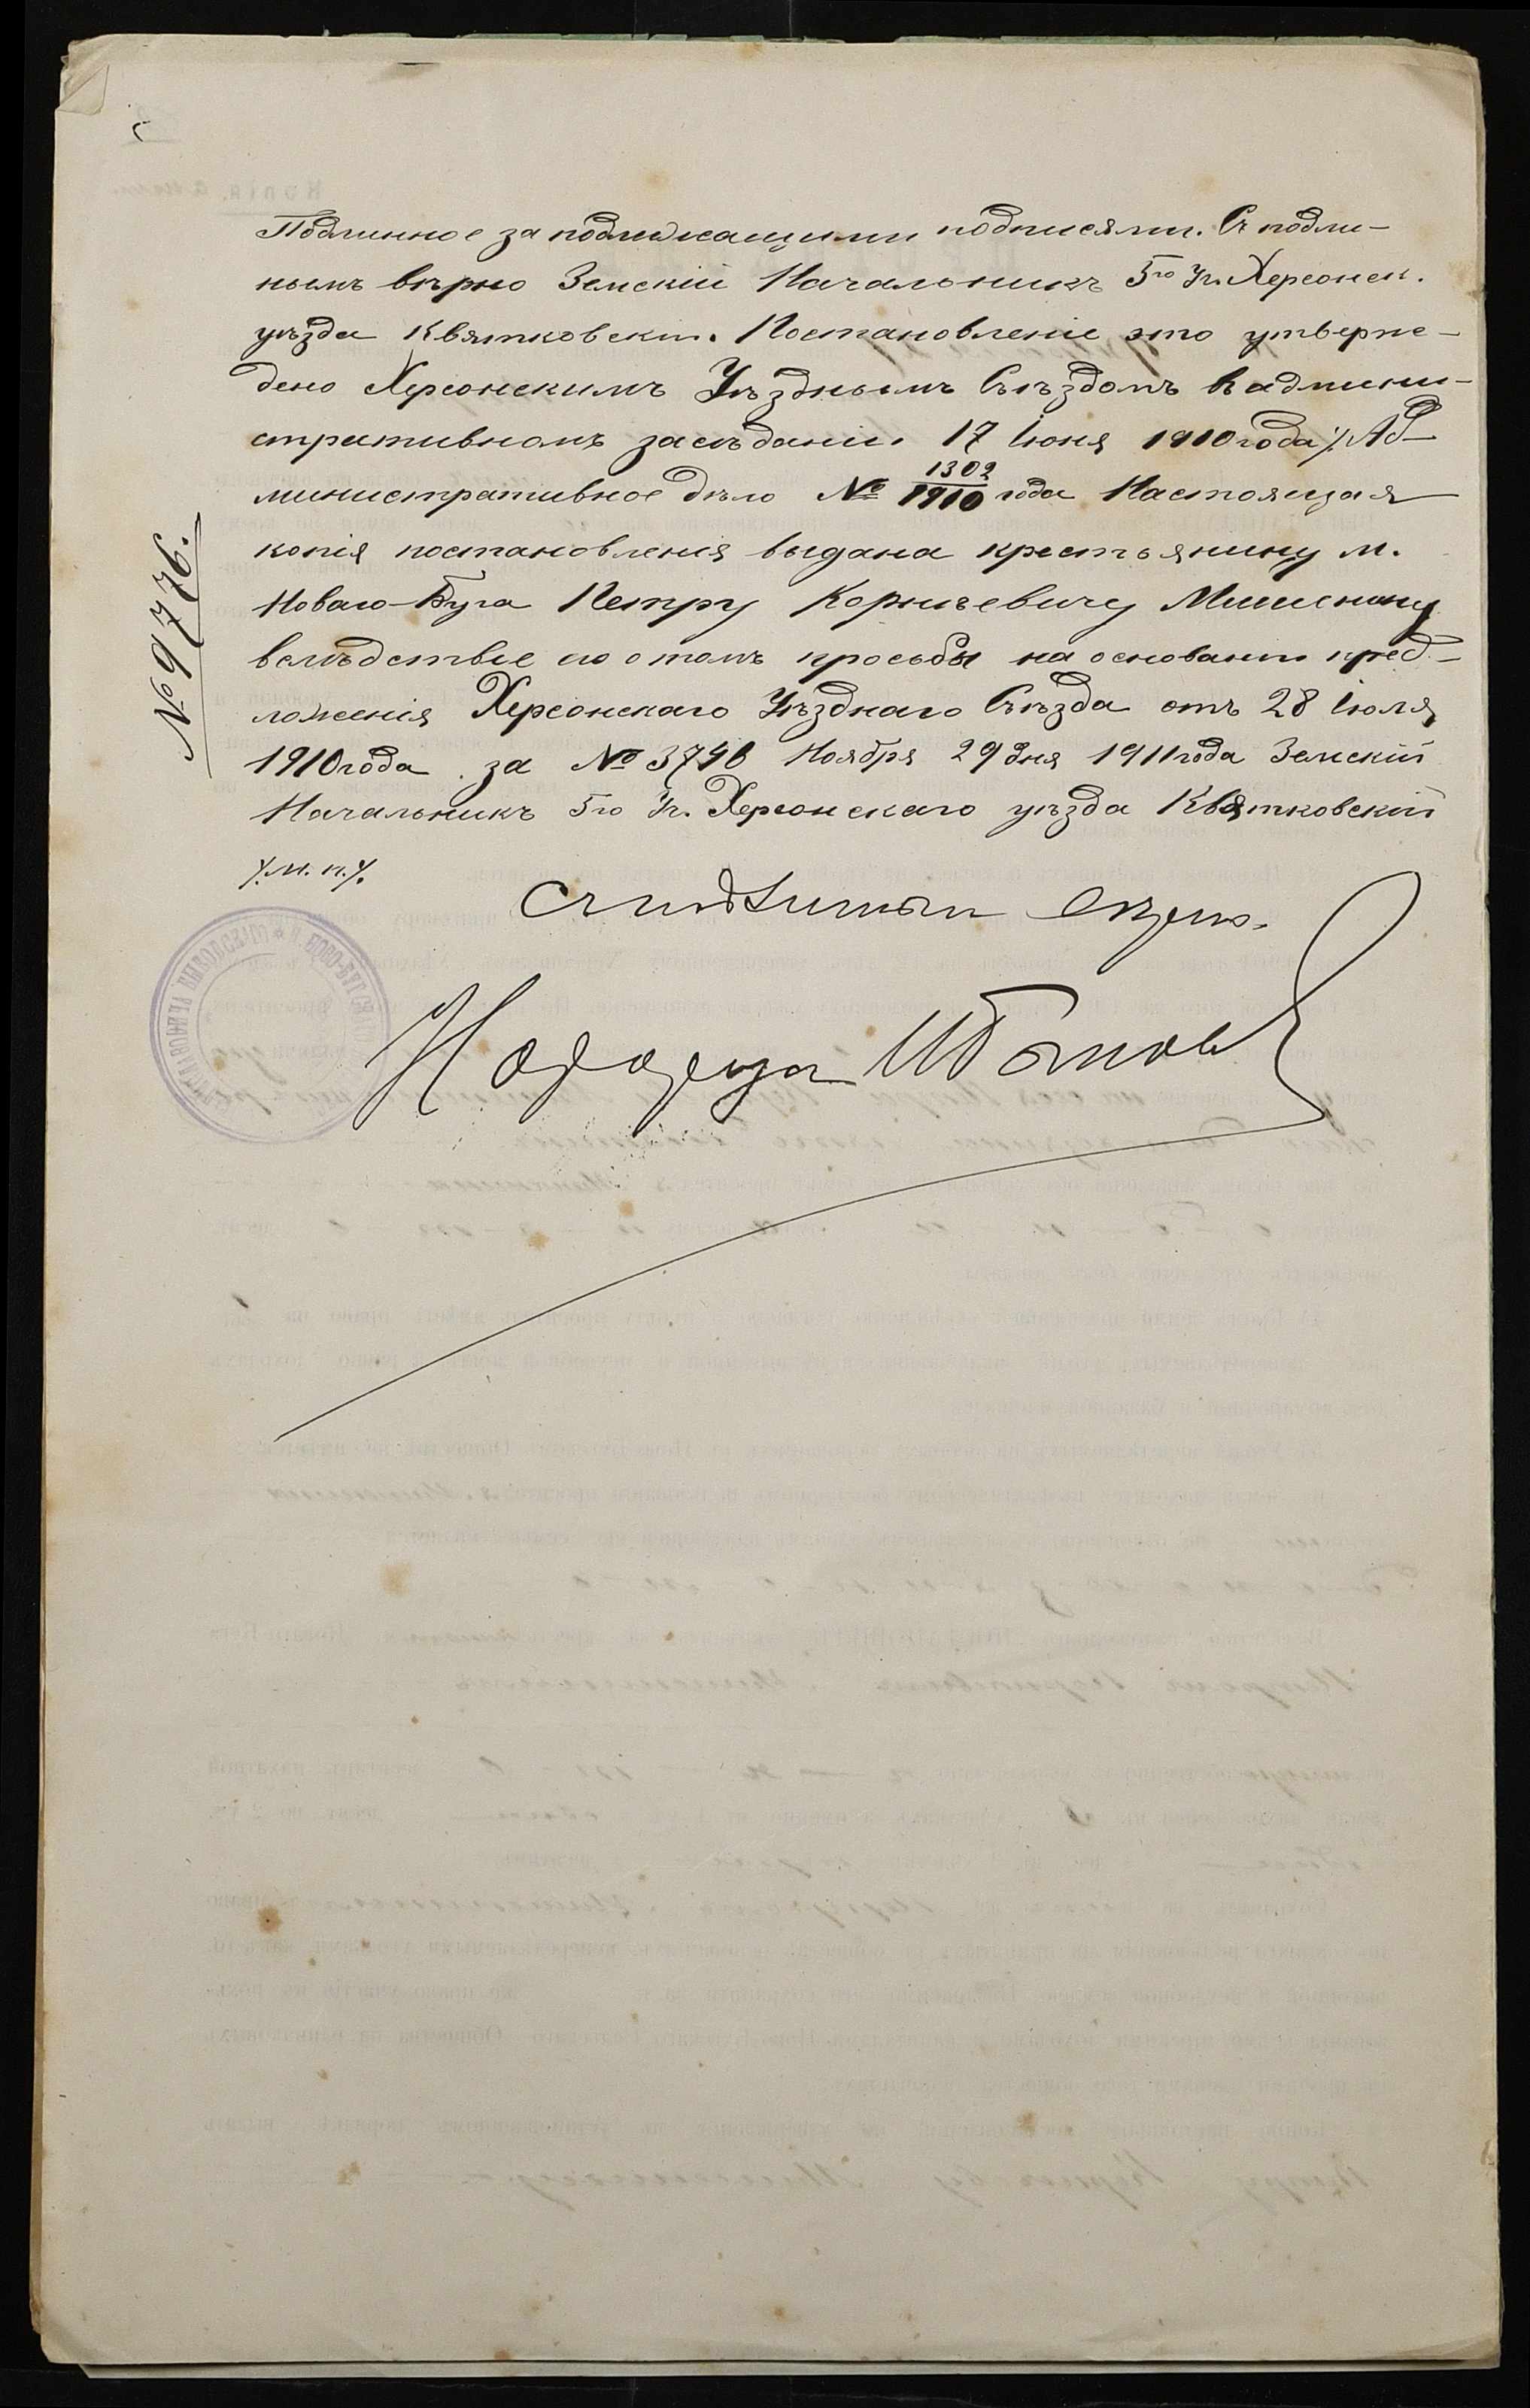 Подлинное за надлежащими подписями. Съ подли-
нымъ вѣрно Земскій Начальникъ 5го Уч. Херсонск.
уѣзда Квятковскій. Постановленіе это утверж-
дено Херсонскимъ Уѣзднымъ Съѣздомъ въ админи-
стративномъ засѣданіи 17 Іюня 1910 года /. Ад-
министративное дѣло № 1302/1910 года Настоящая
копія постановленія выдана крестьянину м.
Новаго-Буга Петру Корнѣевичу Мишенину
вслѣдствіе его о томъ просьбы на основаніи пред-
ложенія Херсонскаго Уѣзднаго Съѣзда отъ 28 Іюля
1910 года за № 3746 Ноября 29 дня 1911 года Земскій
Начальникъ 5го Уч. Херсонскаго уѣзда Квятковскій
/. М. п. /.
Съ подлиннымъ вѣрно.
№ 9776.